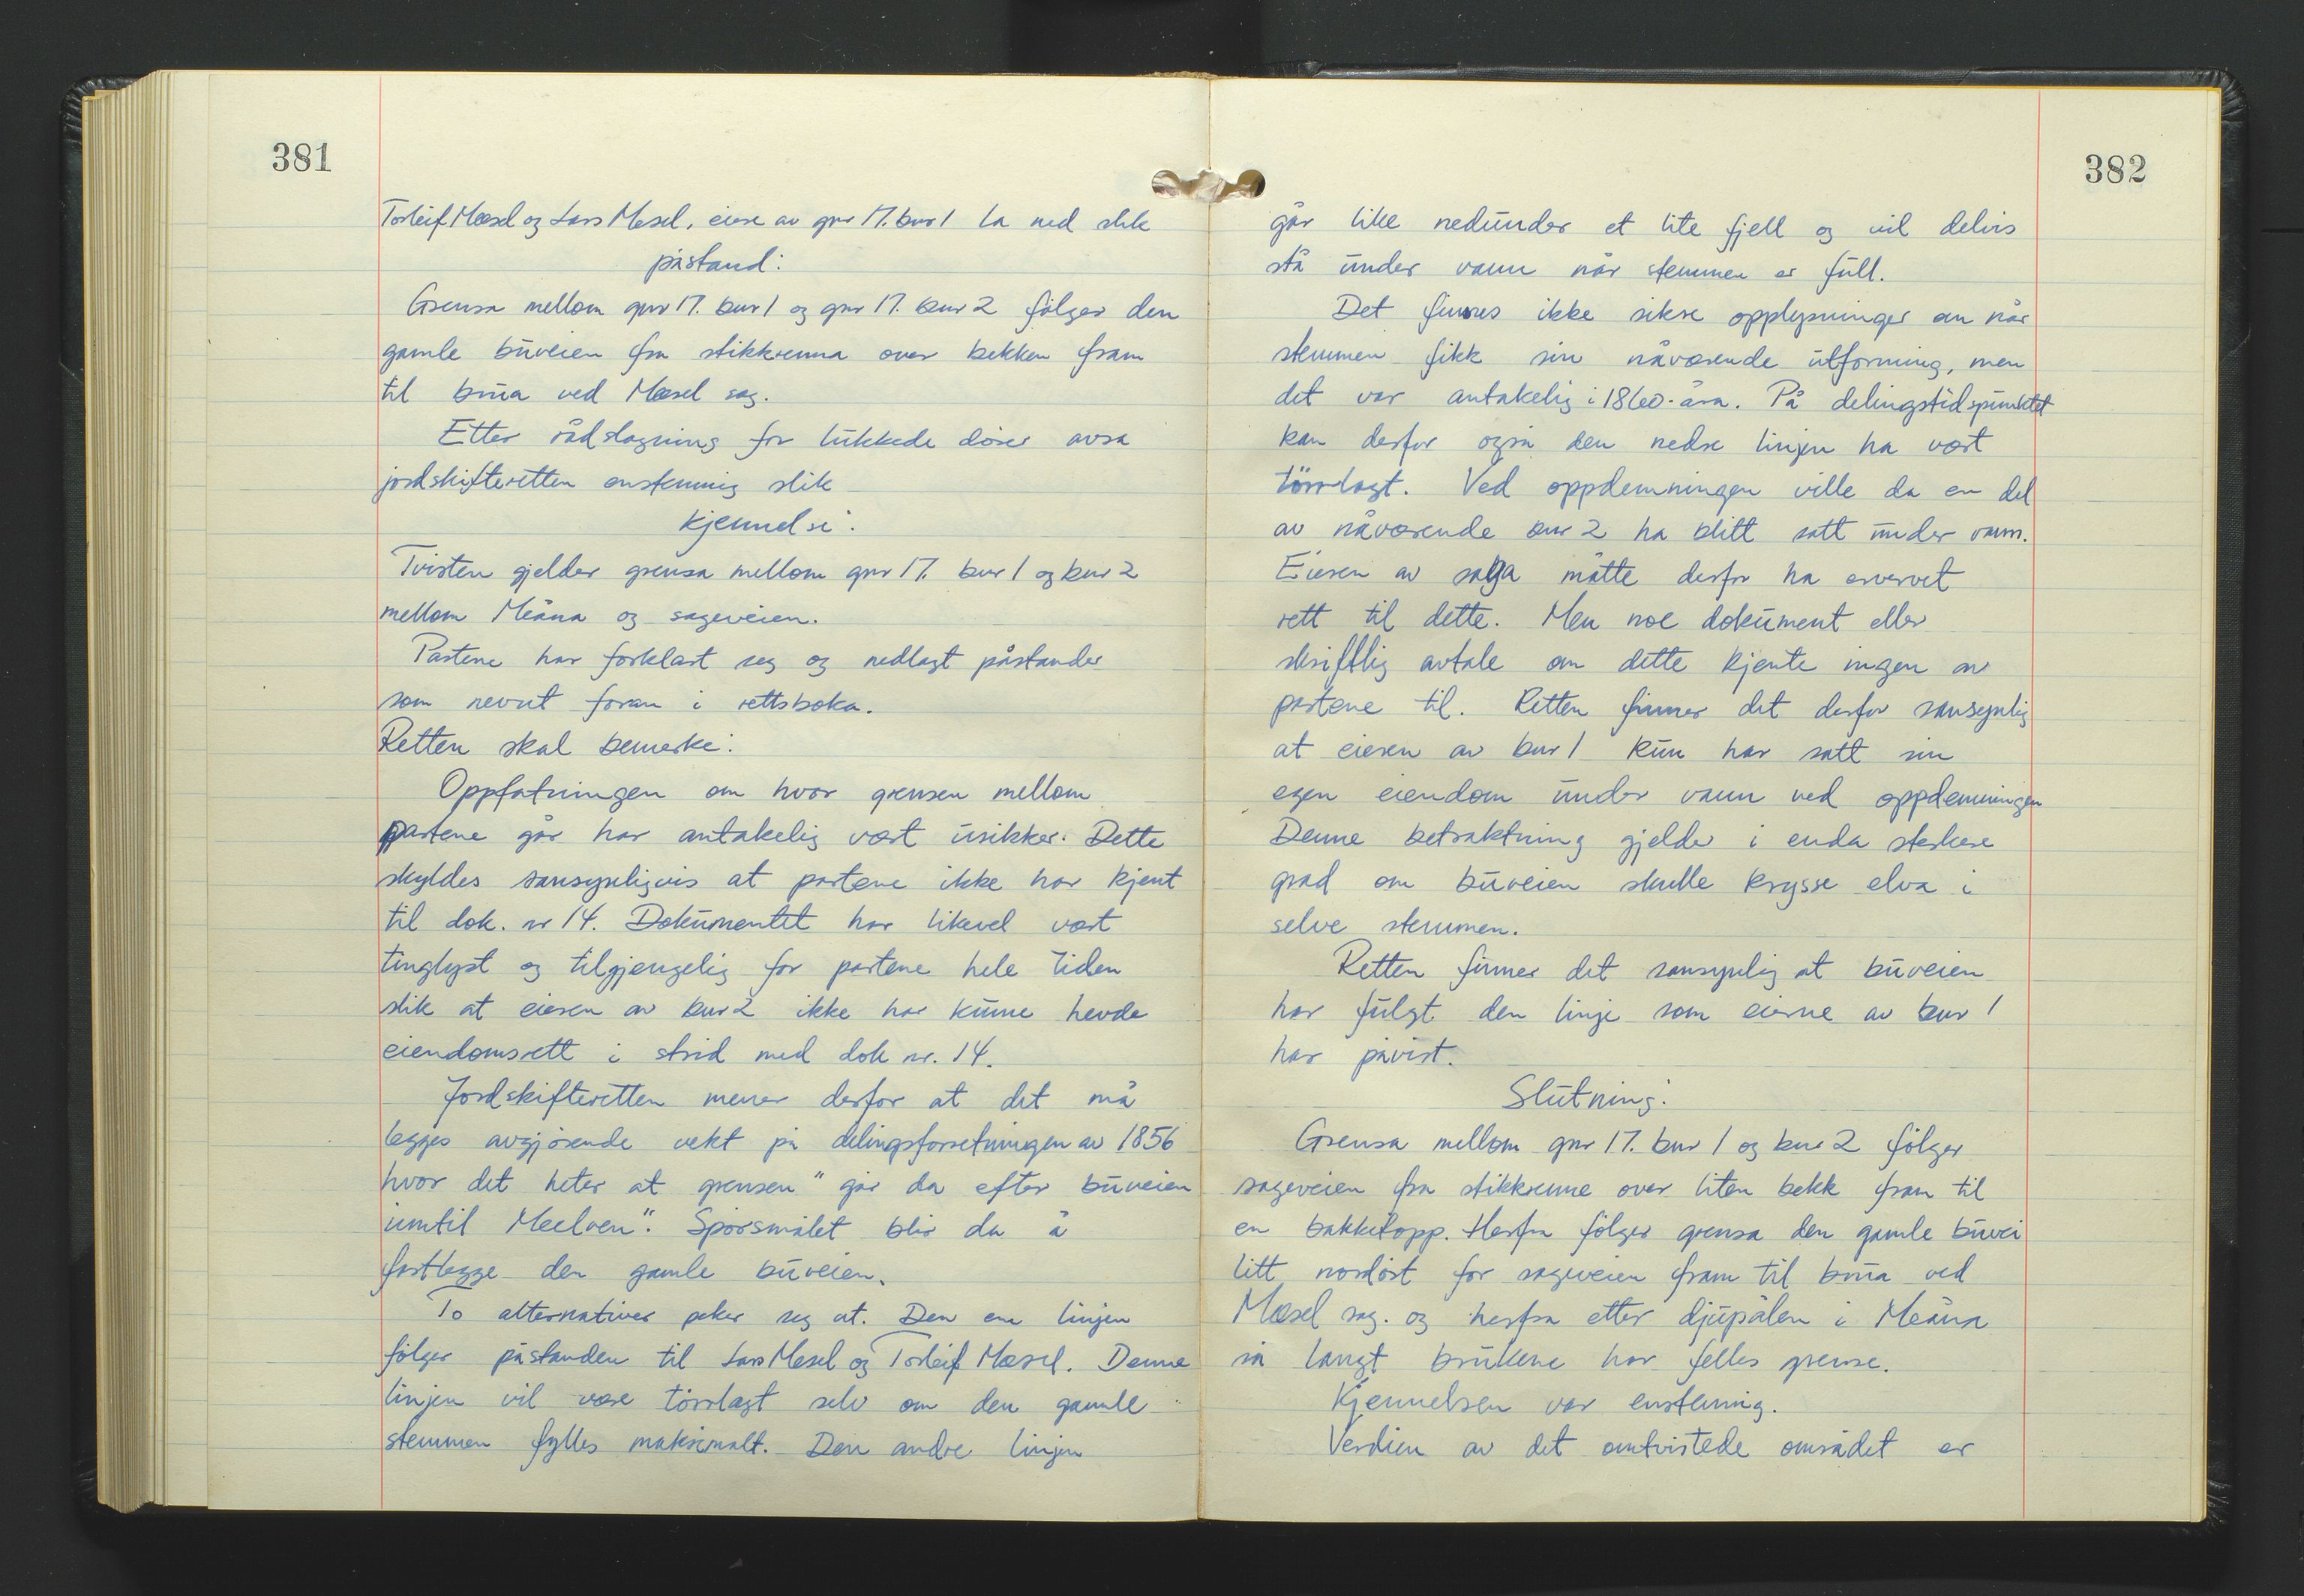 381
Torleif Mæsel og Lars Mæsel, eiere av gnr 17. bnr 1 la ned slik
påstand:
Grensa mellom gnr 17. bnr 1 og gnr 17. bnr 2 følger den
gamle buveien fra stikkrenna over bekken fram
til brua ved Mæsel sag.
Etter rådslagning for lukkede dører avsa
jordskifteretten enstemmig slik
kjennelse:
Tvisten gjelder grensa mellom gnr 17. bnr 1 og bnr 2
mellom Meåna og sageveien.
Partene har forklart seg og nedlagt påstander
som nevnt foran i rettsboka.
Retten skal bemerke:
Oppfatningen om hvor grensen mellom
partene går har antakelig vært usikker. Dette
skyldes sansynligvis at partene ikke har kjent
til dok. nr 14. Dokumentet har likevel vært
tinglyst og tilgjengelig for partene hele tiden
slik at eieren av bnr 2 ikke har kunne hevde
eiendomsrett i strid med dok nr. 14.
Jordskifteretten mener derfor at det må
legges avgjørende vekt på delingsforretningen av 1856
hvor det heter at grensen "går da efter buveien
inntil Meelven". Spørsmålet blir da å
fastlegge den gamle buveien.
To alternativer peker seg ut. Den ene linjen
følger påstanden til Lars Mæsel og Torleif Mæsel. Denne
linjen vil være tørrlagt selv om den gamle
stemmen fylles maksimalt. Den andre linjen
382
går like nedunder et lite fjell og vil delvis
stå under vann når stemmen er full.
Det finnes ikke sikre opplysninger om når
stemmen fikk sin nåværende utforming, men
det var antakelig i 1860-åra. På delingstidspunktet
kan derfor også den nedre linjen ha vært
tørrlagt. Ved oppdemningen ville da en del
av nåværende bnr 2 ha blitt satt under vann.
Eieren av saga måtte derfor ha ervervet
rett til dette. Men noe dokument eller
skriftlig avtale om dette kjente ingen av
partene til. Retten finner det derfor sansynlig
at eieren av bnr 1 kun har satt sin
egen eiendom under vann ved oppdemningen
Denne betraktning gjelder i enda sterkere
grad om buveien skulle krysse elva i
selve stemmen.
Retten finner det sansynlig at buveien
har fulgt den linje som eierne av bnr 1
har påvist.
Slutning:
Grensa mellom gnr 17. bnr 1 og bnr 2 følger
sageveien fra stikkrenne over liten bekk fram til
en bakketopp. Herfra følger grensa den gamle buvei
litt nordøst for sageveien fram til brua ved
Mæsel sag. og herfra etter djupålen i Meåna
så langt brukene har felles grense.
Kjennelsen var enstemmig.
Verdien av det omtvistede området er